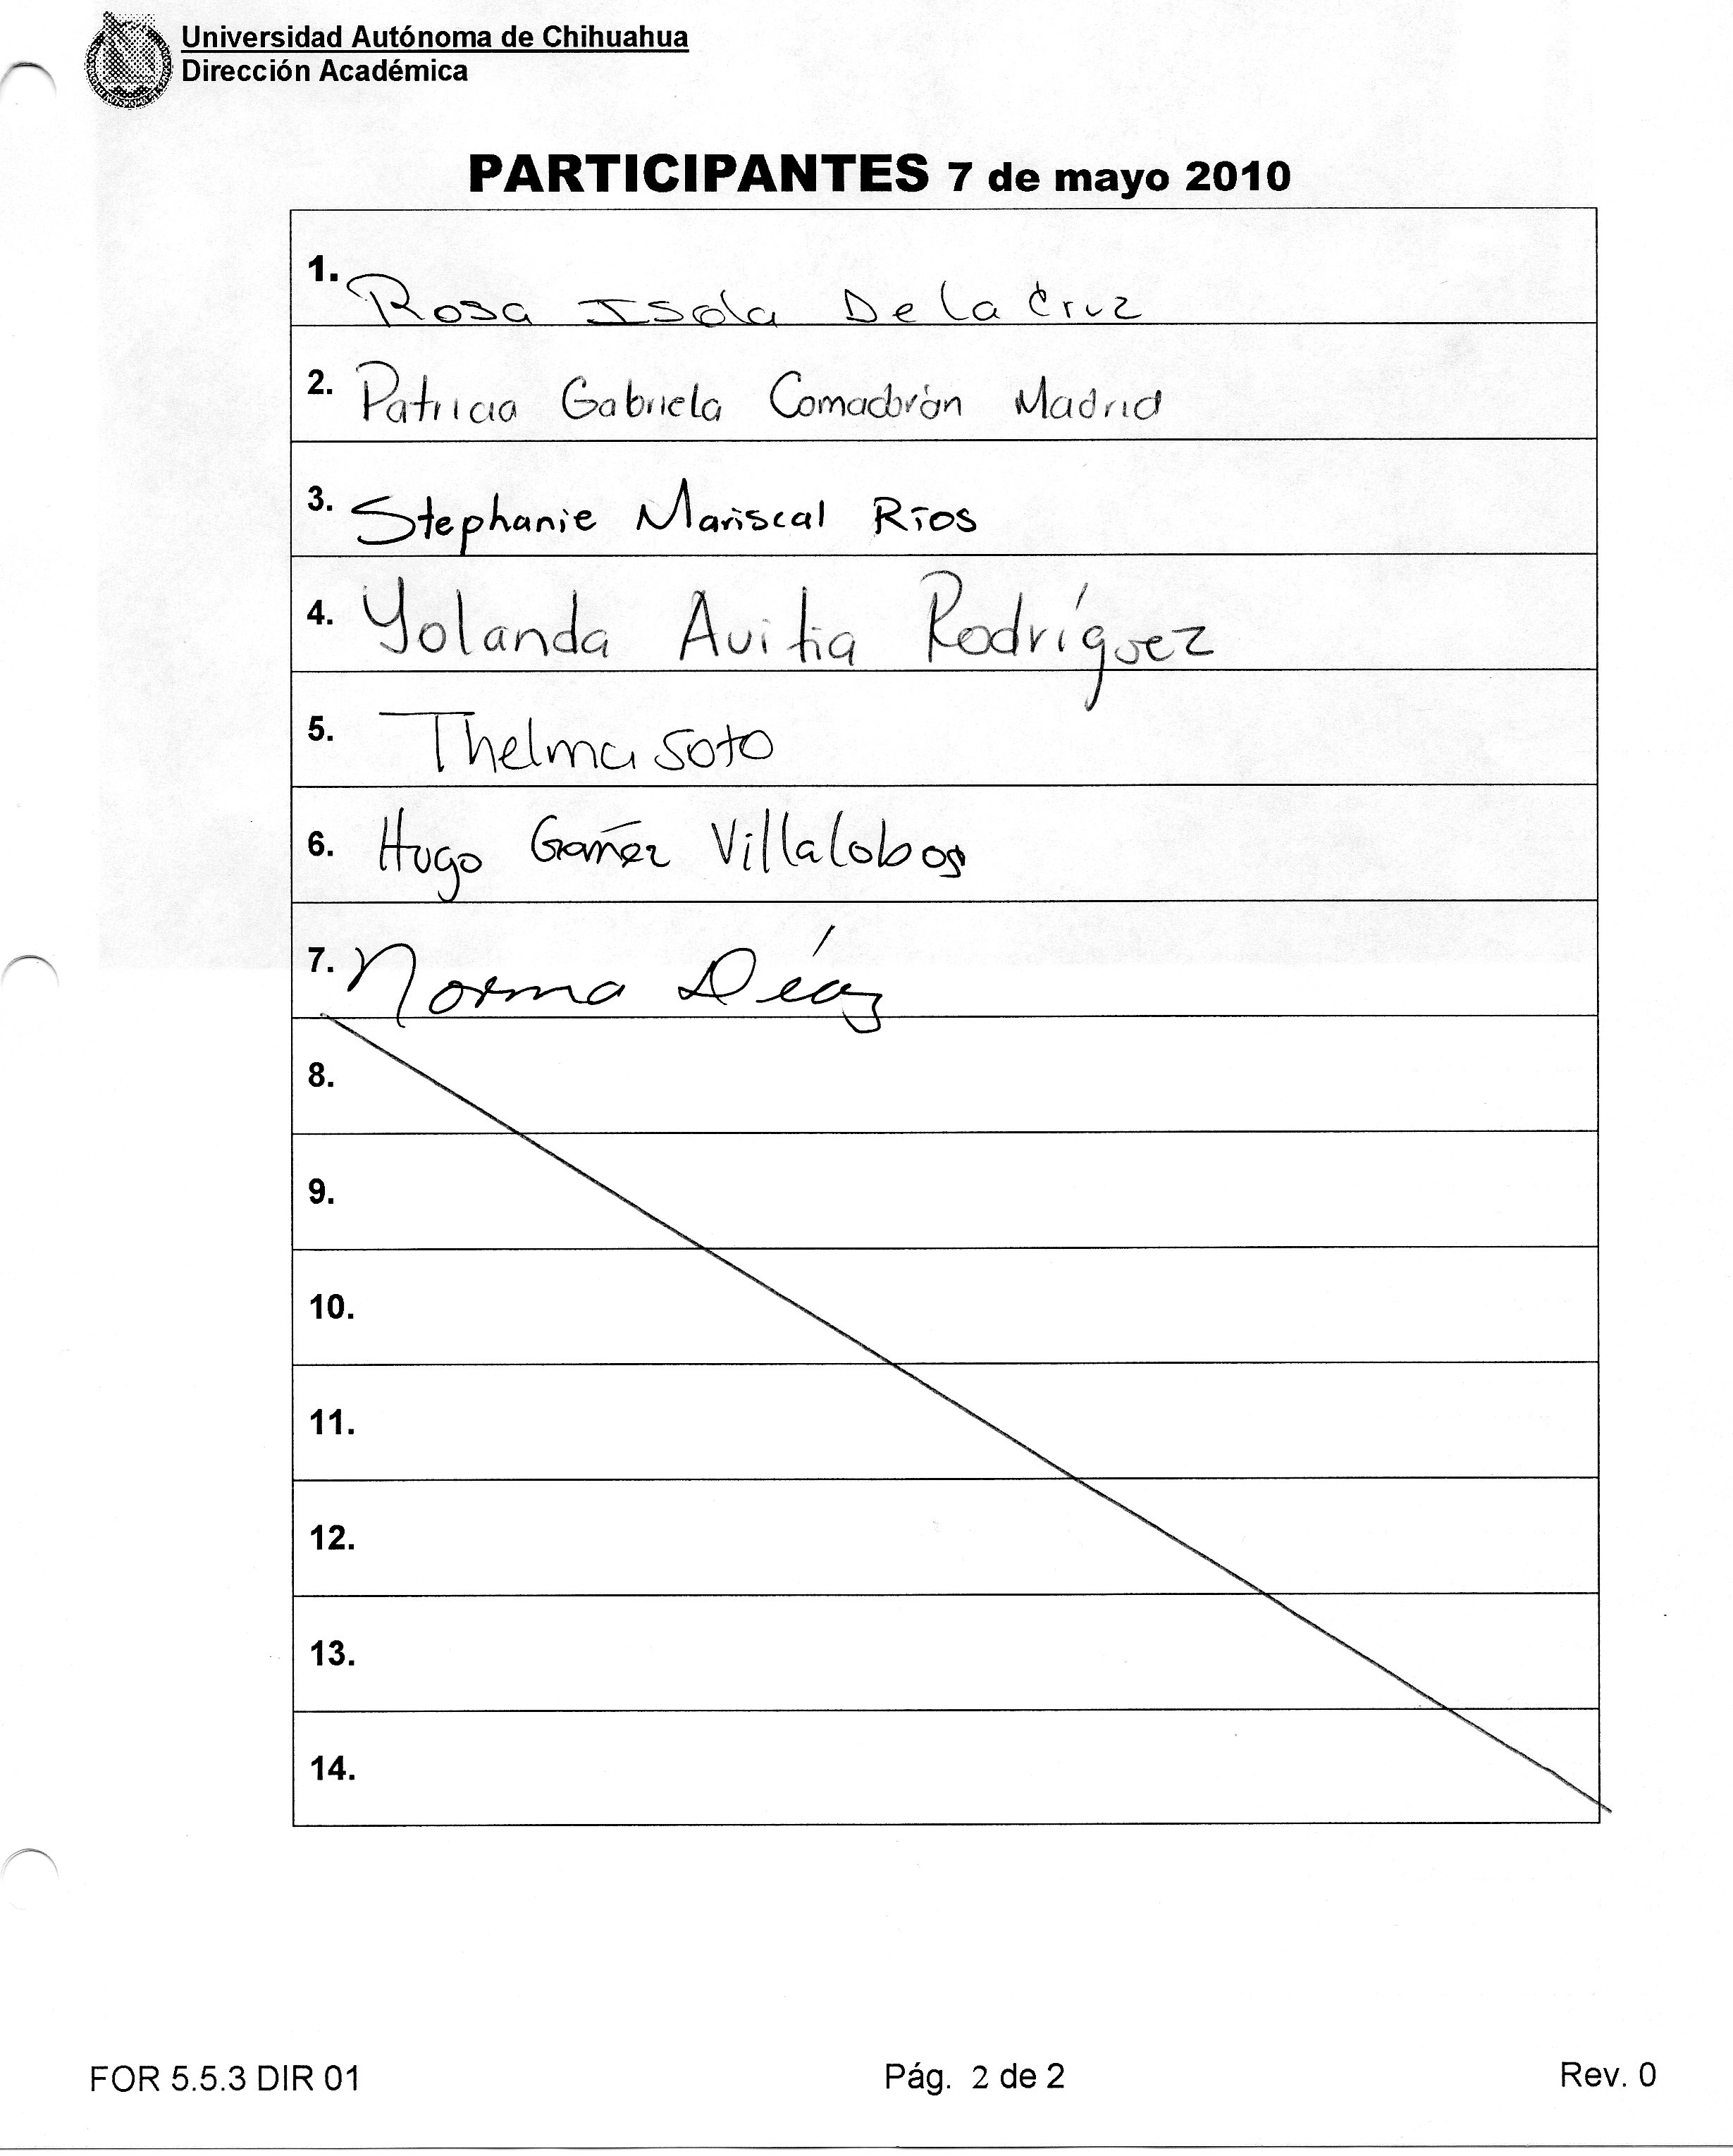 Universidad Autónoma de Chihuahua
Dirección Académica
PARTICIPANTES 7 de mayo 2010
1. Rosa Isela De la Cruz
2. Patricia Gabriela Comadurán Madrid
3. Stephanie Mariscal Ríos
4. Yolanda Avitia Rodríguez
5. Thelma Soto
6. Hugo Gámez Villalobos
7. Norma Díaz
8.
9.
10.
11.
12.
13.
14.
FOR 5.5.3 DIR 01 Pág. 2 de 2 Rev. 0